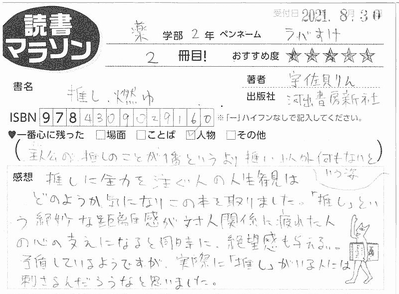 読書
マラソン
受付日 2021.8.30
薬 学部 2年 ペンネーム うがすけ
2 冊目! おすすめ度 ★★★★★
書名 推し、燃ゆ
著者 宇佐見りん
出版社 河出書房新社
ISBN 978 4309029160 [ー]ハイフンなしで記入してください。
♥一番心に残った □場面 □ことば □人物 □その他
(主人公の推しのことが1番というより推し以外何もないという姿)
感想 推しに全力を注ぐ人の人生観は
どのようか気になりこの本を取りました。「推し」とい
う絶妙な距離感が、文さ人間関係に疲れた人
の心の支えになると同時に、絶望感も与える...
矛盾しているようですが、実際に「推し」がいる人には
刺さるんだろうなと思いました。